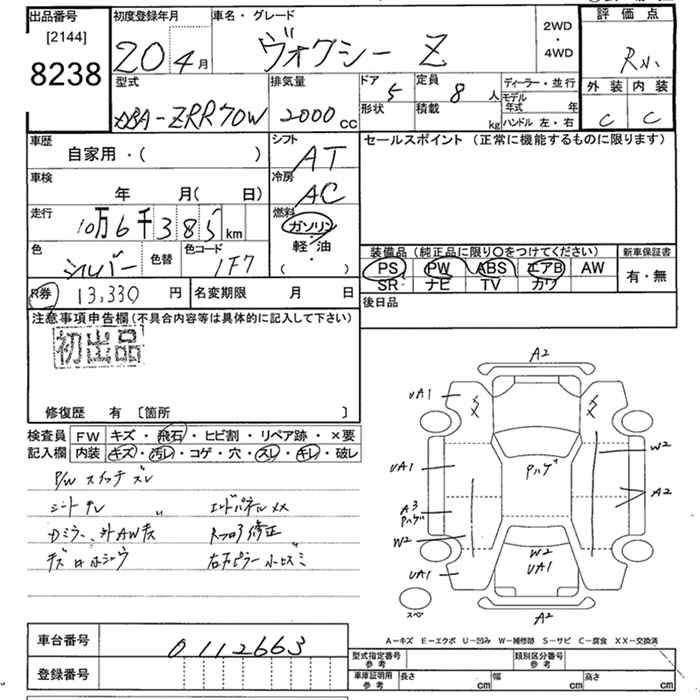 出品番号 初度登録年月 車名・グレード 2WD・4WD 評価点
[2144]
8238
20 4月 ヴォクシー Z
外装 内装
C C
型式 排気量 ドア 定員 ディーラー・並行
DBA-ZRR70W 2000cc 5 8人
形状 積載 kg モデル年式 年
ハンドル 左・右
車歴 シフト セールスポイント (正常に機能するものに限ります)
自家用・( ) AT
車検 冷房
年 月( 日) AC
走行 燃料
10万6千385km ガソリン・軽油
( )
色 色替 色コード
シルバー 1F7
装備品(純正品に限り○をつけてください) 新車保証書
PS PW ABS エアB AW 有・無
SR ナビ TV カワ
R券 13,330円 名変期限 月 日
後日品
注意事項申告欄(不具合内容等は具体的に記入して下さい)
初出品
修復歴 有 〔箇所 〕
検査員 FW キズ・飛石・ヒビ割・リペア跡・×要
記入欄 内装 キズ・汚レ・コゲ・穴・スレ・キレ・破レ
P/W スイッチ スレ
A2
UA1
W2
UA1 Pハゲ
A2
A3
Pハゲ
W2
W2
UA1
UA1
A2
スペア
A-キズ E-エクボ U-凹み W-補修跡 S-サビ C-腐食 XX-交換済
車台番号 0112663
登録番号
型式指定番号 参考 類別区分番号 参考
車庫証明用 参考 長さ cm 幅 cm 高さ cm